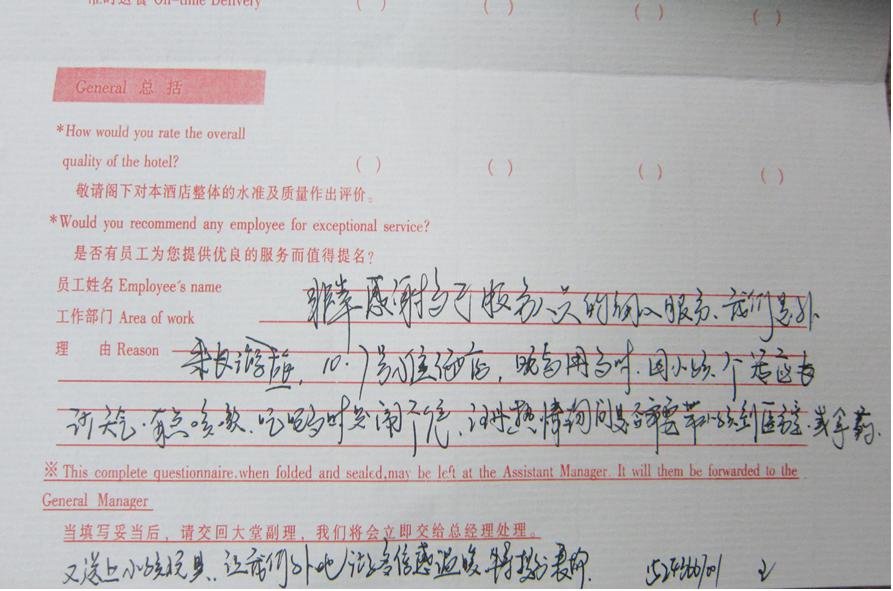 准时送餐 On-time Delivery ( ) ( ) ( ) ( )
General 总 括
*How would you rate the overall
quality of the hotel? ( ) ( ) ( ) ( )
敬请阁下对本酒店整体的水准及质量作出评价。
*Would you recommend any employee for exceptional service?
是否有员工为您提供优良的服务而值得提名?
员工姓名 Employee's name
非常感谢 服务员的 服务、我们是外
工作部门 Area of work
理 由 Reason
来 游 , 10.1号入住酒店, 用 时, 因小孩
天气, 有点咳嗽, 吃 时 闹 , 热情询问是否需要带小孩到医 或拿药.
※ This complete questionnaire,when folded and sealed,may be left at the Assistant Manager. It will them be forwarded to the
General Manager
当填写妥当后，请交回大堂副理，我们将会立即交给总经理处理。
又送上小孩玩具, 让我们外地 倍感温暖 特 表扬.